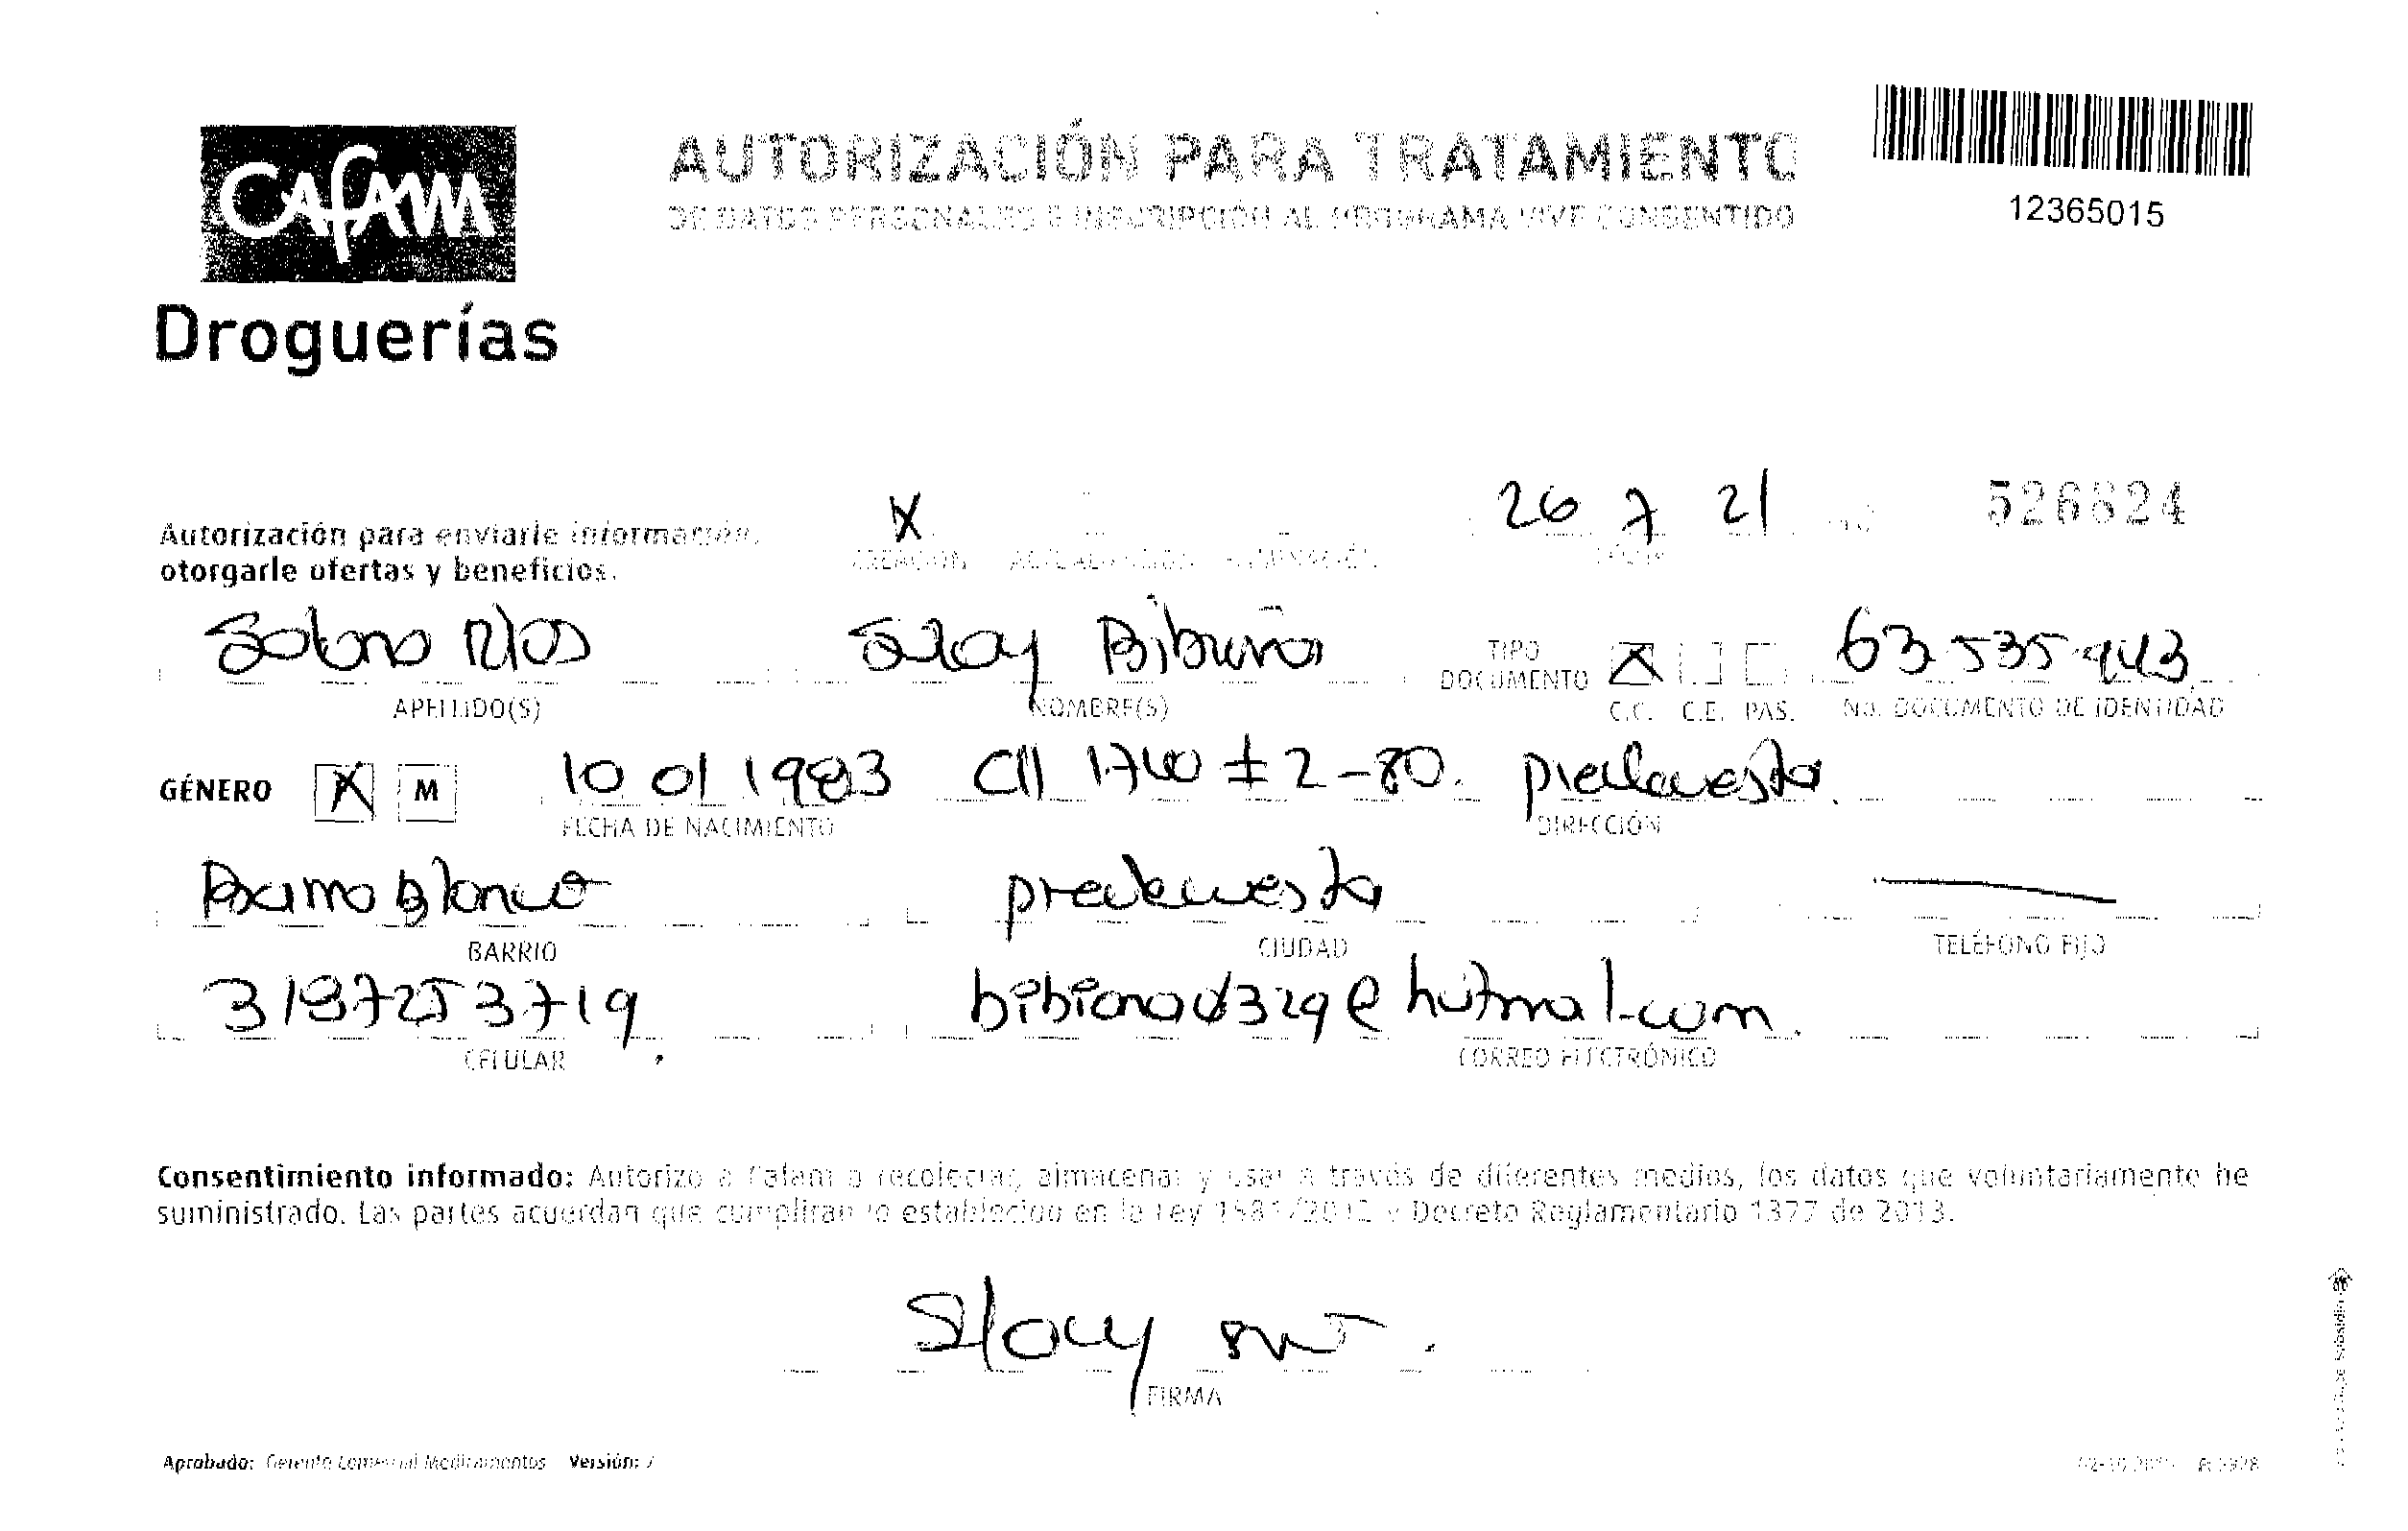 Cafam
Droguerías
AUTORIZACIÓN PARA TRATAMIENTO
DE DATOS PERSONALES E INSCRIPCIÓN AL PROGRAMA VIVE CONSENTIDO
12365015
Autorización para enviarle información,
otorgarle ofertas y beneficios.
X
CREACIÓN ACTUALIZACIÓN
26 7 21
FECHA
No 526824
Rios
APELLIDO(S)
NOMBRE(S)
TIPO
DOCUMENTO
X
C.C. C.E. PAS.
63.535.943
No. DOCUMENTO DE IDENTIDAD
GÉNERO X M
10 01 1983
FECHA DE NACIMIENTO
Cll # 2-80. piedecuesta.
DIRECCIÓN
Barro Blanco
BARRIO
piedecuesta
CIUDAD
TELÉFONO FIJO
3187253719
CELULAR
CORREO ELECTRÓNICO
Consentimiento informado: Autorizo a Cafam a recolectar, almacenar y usar a través de diferentes medios, los datos que voluntariamente he
suministrado. Las partes acuerdan que cumplirán lo establecido en la Ley 1581/2012 y Decreto Reglamentario 1377 de 2013.
FIRMA
Aprobado: Gerente Comercial Medicamentos Versión: